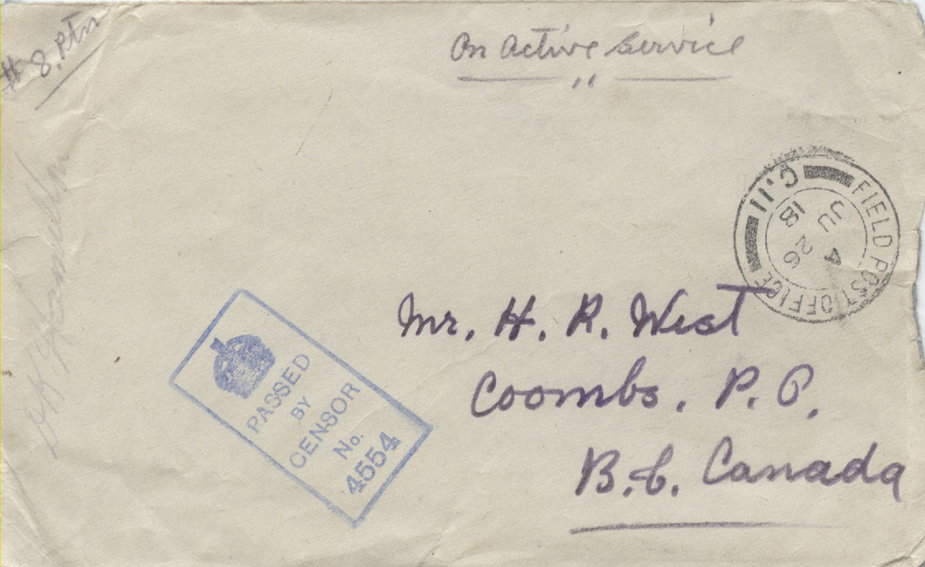 # 8. Ptn
On Active Service
FIELD POST OFFICE
A
JU 26
18
C.11
Mr. H. R. West
Coombs. P. O.
B.C. Canada
PASSED
BY
CENSOR
No.
4554
Hamilton